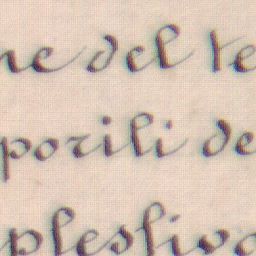 ne del te
porili de
plessivo